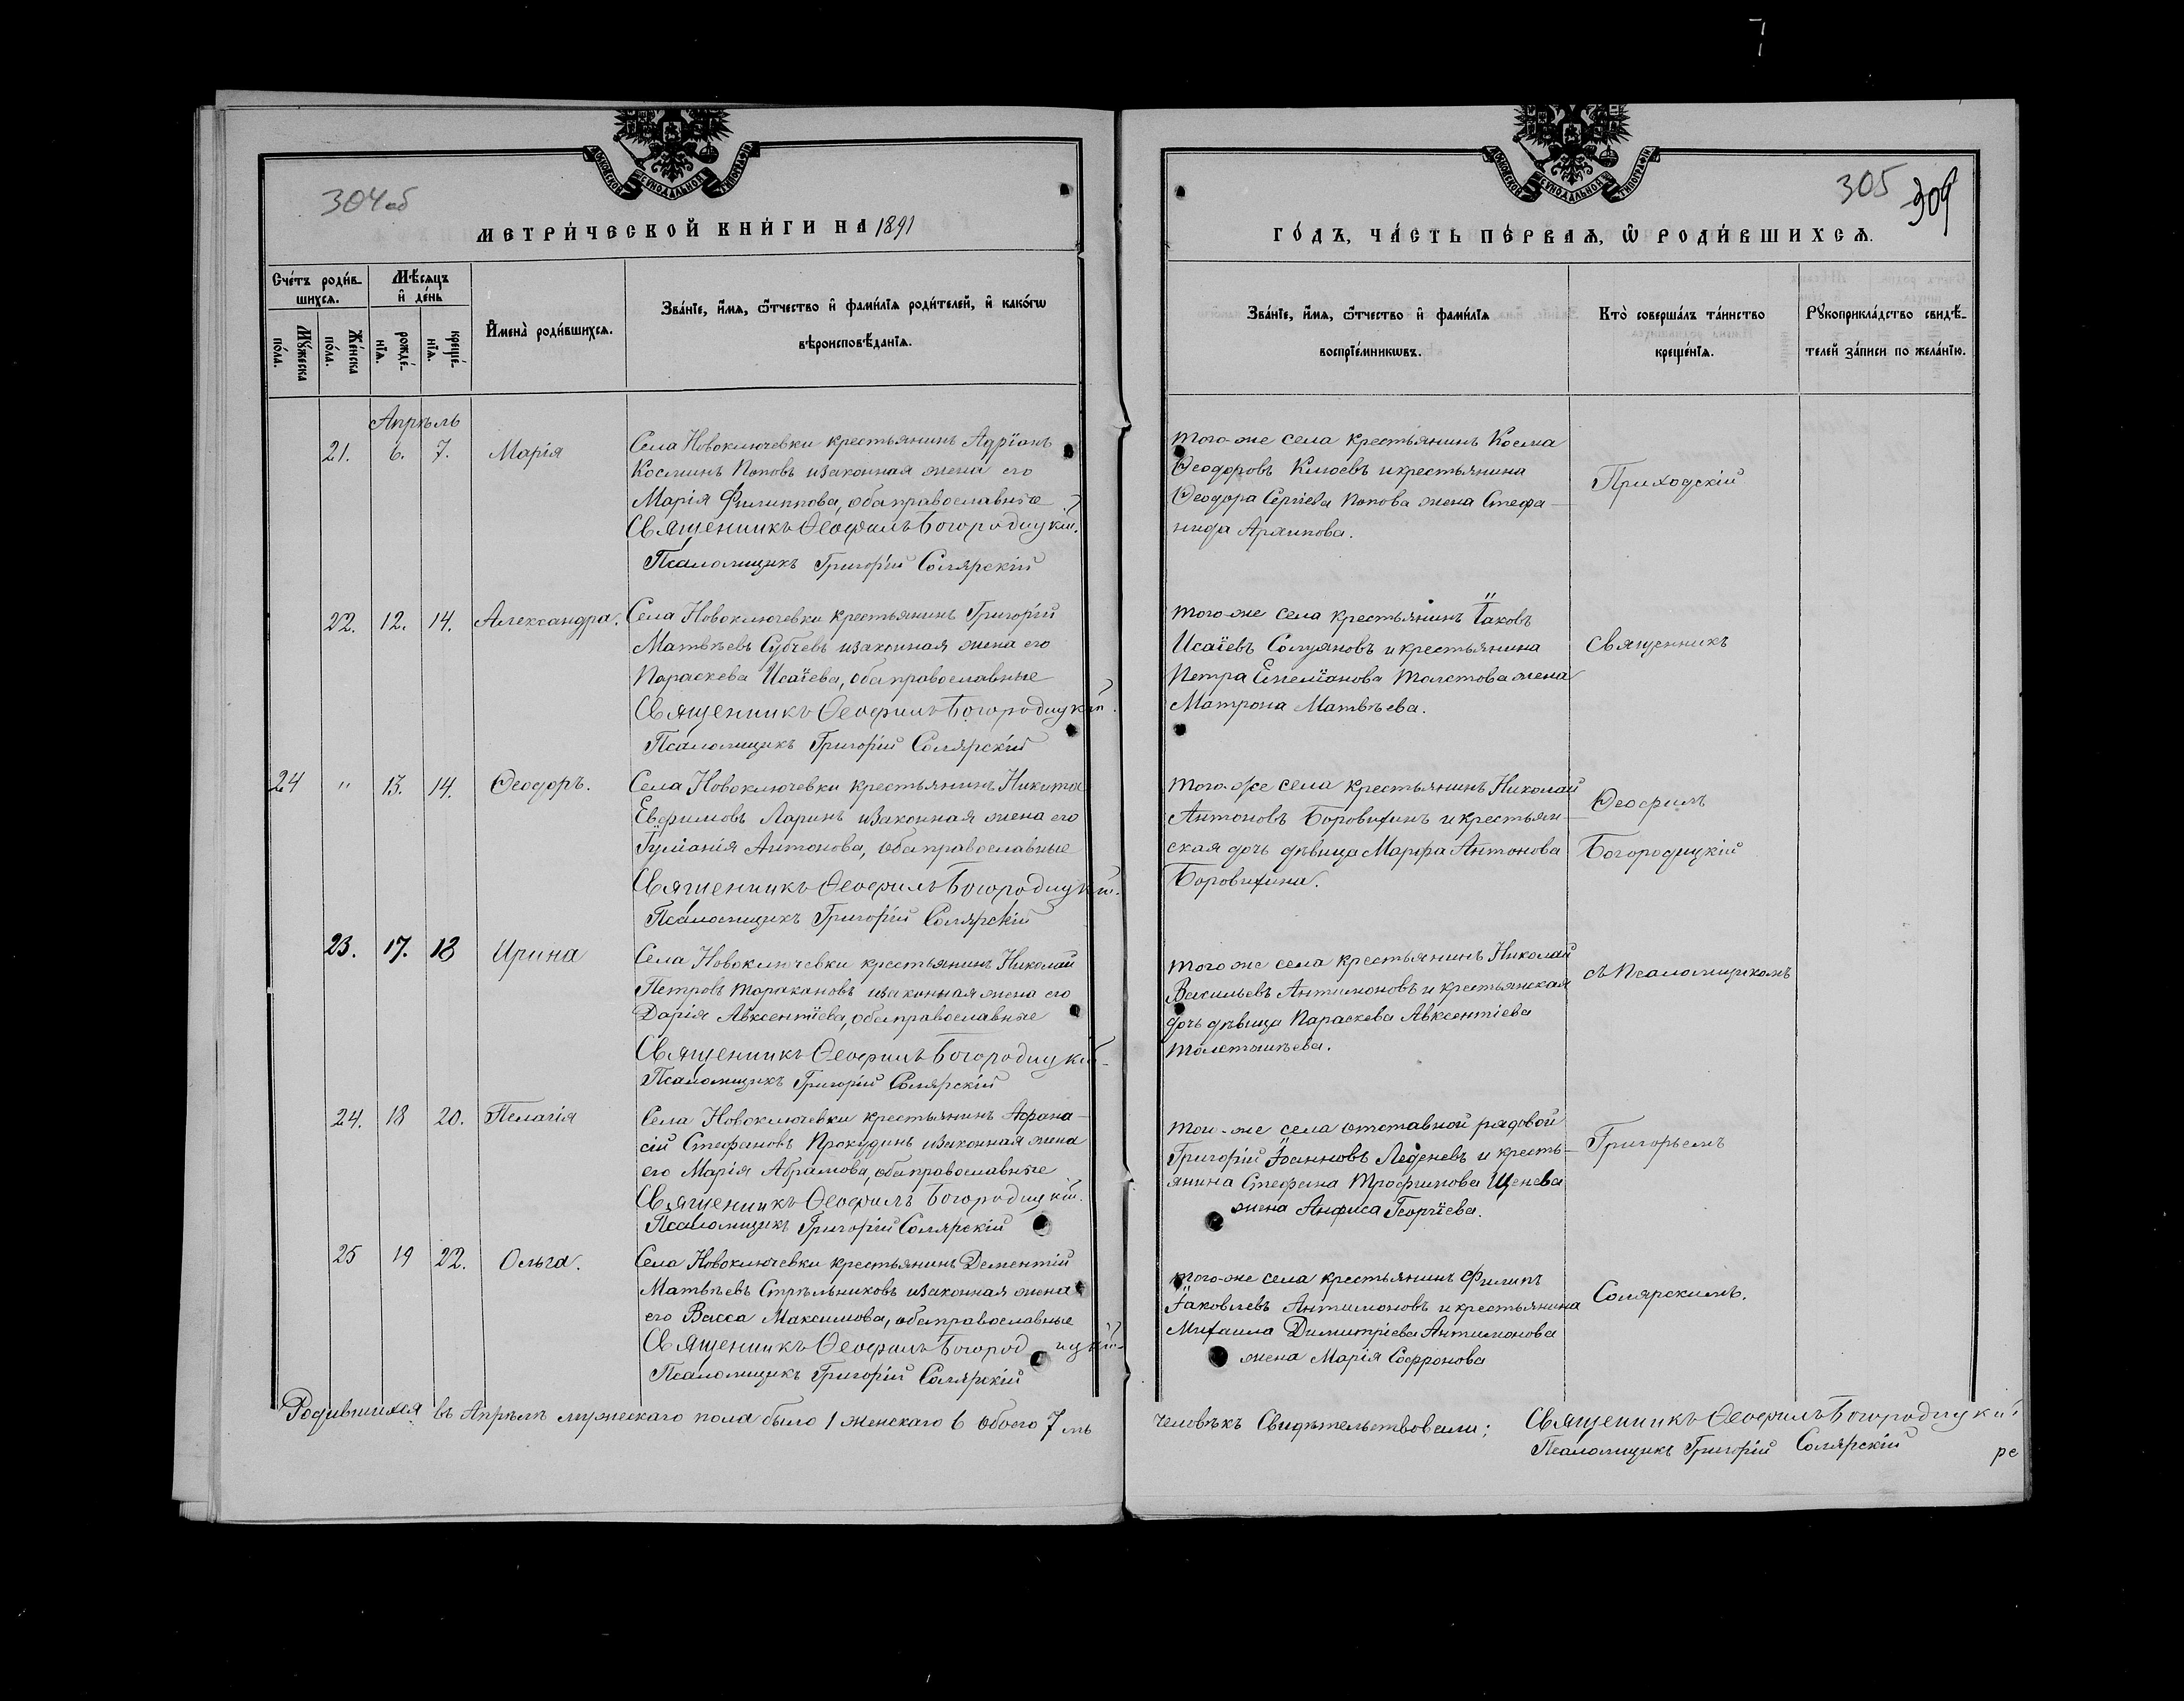 304об
МОСКОВСКОЙ СѴНОДАЛЬНОЙ ТИПОГРАФІИ
МЕТРИ́ЧЕСКОЙ КНИ́ГИ НА 1891
Сче́тъ роди́в-
шихся.
Мѣ́сяцъ
и҆ де́нь
Му́жеска
по́ла.
Же́нска
по́ла.
рожде́-
нїя.
креще́-
нїя.
И҆мена̀ роди́вшихся.
Зва́нїе, и҆́мя, ѻ҆́тчество и҆ фами́лїя роди́телей, и҆ како́гѡ
вѣроисповѣ́данїя.
Апрѣль
21. 6. 7. Марія
Села Новоключевки крестьянинъ Адріанъ
Косминъ Поповъ и законная жена его
Марія Филиппова, оба православные
Священникъ Ѳеофилъ Богородицкій.
Псаломщикъ Григорій Солярскій
22. 12. 14. Александра.
Села Новоключевки крестьянинъ Григорій
Матвѣевъ Субчевъ и законная жена его
Параскева Исаіева, оба православные
Священникъ Ѳеофилъ Богородицкій.
Псаломщикъ Григорій Солярскій
24 " 13. 14. Ѳеодоръ.
Села Новоключевки крестьянинъ Никита
Евфимовъ Ларинъ и законная жена его
Іуліанія Антонова, оба православные
Священникъ Ѳеофилъ Богородицкій.
Псаломщикъ Григорій Солярскій
23. 17. 18 Ирина
Села Новоключевки крестьянинъ Николай
Петровъ Таракановъ и законная жена его
Дарія Авксентіева, оба православные
Священникъ Ѳеофилъ Богородицкій
Псаломщикъ Григорій Солярскій
24. 18 20. Пелагія
Села Новоключевки крестьянинъ Афана-
сій Стефановъ Прокудинъ и законная жена
его Марія Абрамова, оба православные
Священникъ Ѳеофилъ Богородицкій.
Псаломщикъ Григорій Солярскій
25 19 22. Ольга.
Села Новоключевки крестьянинъ Дементій
Матвѣевъ Стрѣльниковъ и законная жена
его Васса Максимова, оба православные
Священникъ Ѳеофилъ Богородицкій
Псаломщикъ Григорій Солярскій
Родившихся въ Апрѣлѣ мужескаго пола было 1 женскаго 6 обоего 7 мь
305 309
МОСКОВСКОЙ СѴНОДАЛЬНОЙ ТИПОГРАФІИ
ГО́ДЪ, ЧА́СТЬ ПЕ́РВАЯ, Ѡ҆ РОДИ́ВШИХСЯ.
Зва́нїе, и҆́мя, ѻ҆́тчество и҆ фами́лїя
воспрїе́мникѡвъ.
Кто̀ соверша́лъ та́инство
креще́нїя.
Рꙋкоприкла́дство свидѣ́-
телей за́писи по жела́нїю.
того-же села крестьянинъ Косма
Ѳеодоровъ Клюевъ и крестьянина
Ѳеодора Сергіева Попова жена Стефа-
нида Архипова.
Приходскій
того-же села крестьянинъ Іаковъ
Исаіевъ Солуяновъ и крестьянина
Петра Емеліанова Толстова жена
Матрона Матвѣева.
священникъ
того-же села крестьянинъ Николай
Антоновъ Боровихинъ и крестьян-
ская дочь дѣвица Марфа Антонова
Боровихина.
Ѳеофилъ
Богородицкій
того же села крестьянинъ Николай
Васильевъ Антимоновъ и крестьянская
дочь дѣвица Параскева Авксентіева
съ псаломщикомъ
того-же села отставной рядовой
Григорій Іоанновъ Леденевъ и кресть-
янина Стефана Трофимова Щенева
жена Анфиса Георгіева.
Григорьемъ
того-же села крестьянинъ Филипъ
Іаковлевъ Антимоновъ и крестьянина
Михаила Димитріева Антимонова
жена Марія Софронова
Солярскимъ.
человѣкъ Свидѣтельствовали; Священникъ Ѳеофилъ Богородицкій
Псаломщикъ Григорій Солярскій
ре